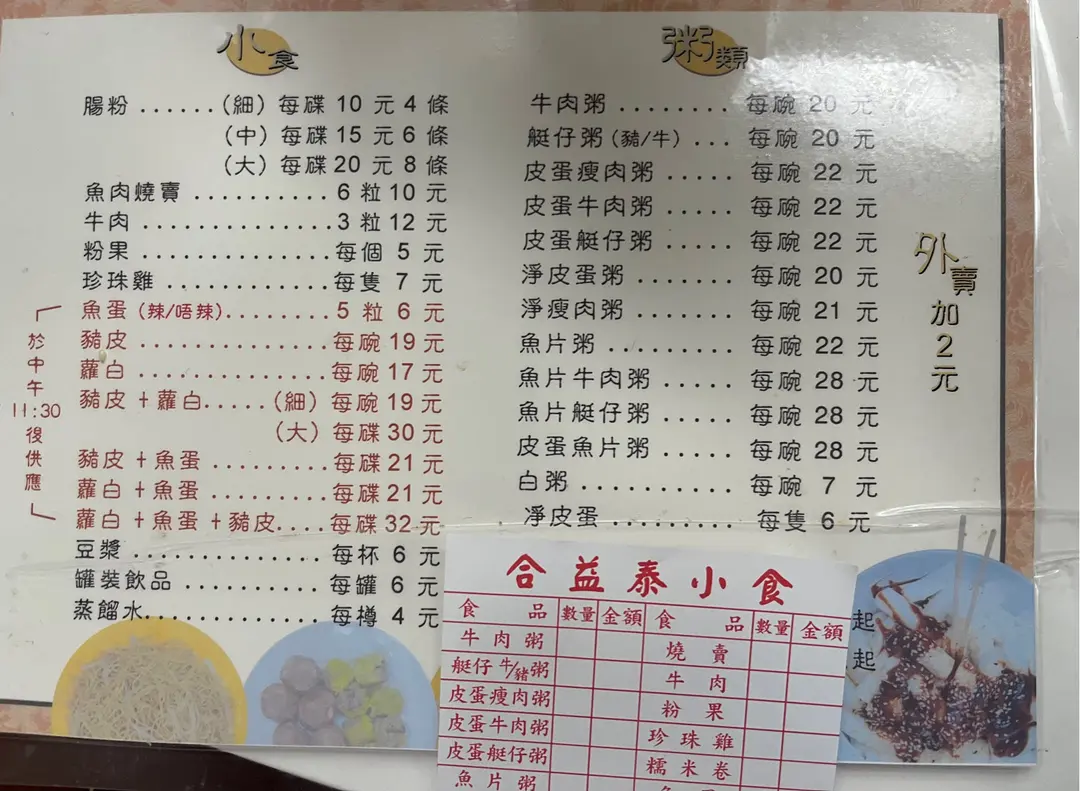 小食
腸粉 ...... (細) 每碟 10 元 4 條
(中) 每碟 15 元 6 條
(大) 每碟 20 元 8 條
魚肉燒賣 .......... 6 粒 10 元
牛肉 .............. 3 粒 12 元
粉果 .............. 每個 5 元
珍珠雞 ............ 每隻 7 元
於中午11:30後供應
魚蛋 (辣/唔辣)........ 5 粒 6 元
豬皮 .............. 每碗 19 元
蘿白 .............. 每碗 17 元
豬皮+蘿白..... (細) 每碗 19 元
(大) 每碟 30 元
豬皮+魚蛋 ......... 每碟 21 元
蘿白+魚蛋 ......... 每碟 21 元
蘿白+魚蛋+豬皮.... 每碟 32 元
豆漿 .............. 每杯 6 元
罐裝飲品 .......... 每罐 6 元
蒸餾水............. 每樽 4 元
粥類
牛肉粥 ........ 每碗 20 元
艇仔粥 (豬/牛) ... 每碗 20 元
皮蛋瘦肉粥 ..... 每碗 22 元
皮蛋牛肉粥 ..... 每碗 22 元
皮蛋艇仔粥 ..... 每碗 22 元
淨皮蛋粥 ....... 每碗 20 元
淨瘦肉粥 ....... 每碗 21 元
魚片粥 ......... 每碗 22 元
魚片牛肉粥 ..... 每碗 28 元
魚片艇仔粥 ..... 每碗 28 元
皮蛋魚片粥 ..... 每碗 28 元
白粥 ........... 每碗 7 元
凈皮蛋 ......... 每隻 6 元
外賣加2元
合益泰小食
食品 數量 金額 食品 數量 金額
牛肉粥 燒賣
艇仔牛/豬粥 牛肉
皮蛋瘦肉粥 粉果
皮蛋牛肉粥 珍珠雞
皮蛋艇仔粥 糯米卷
魚片粥
起
起